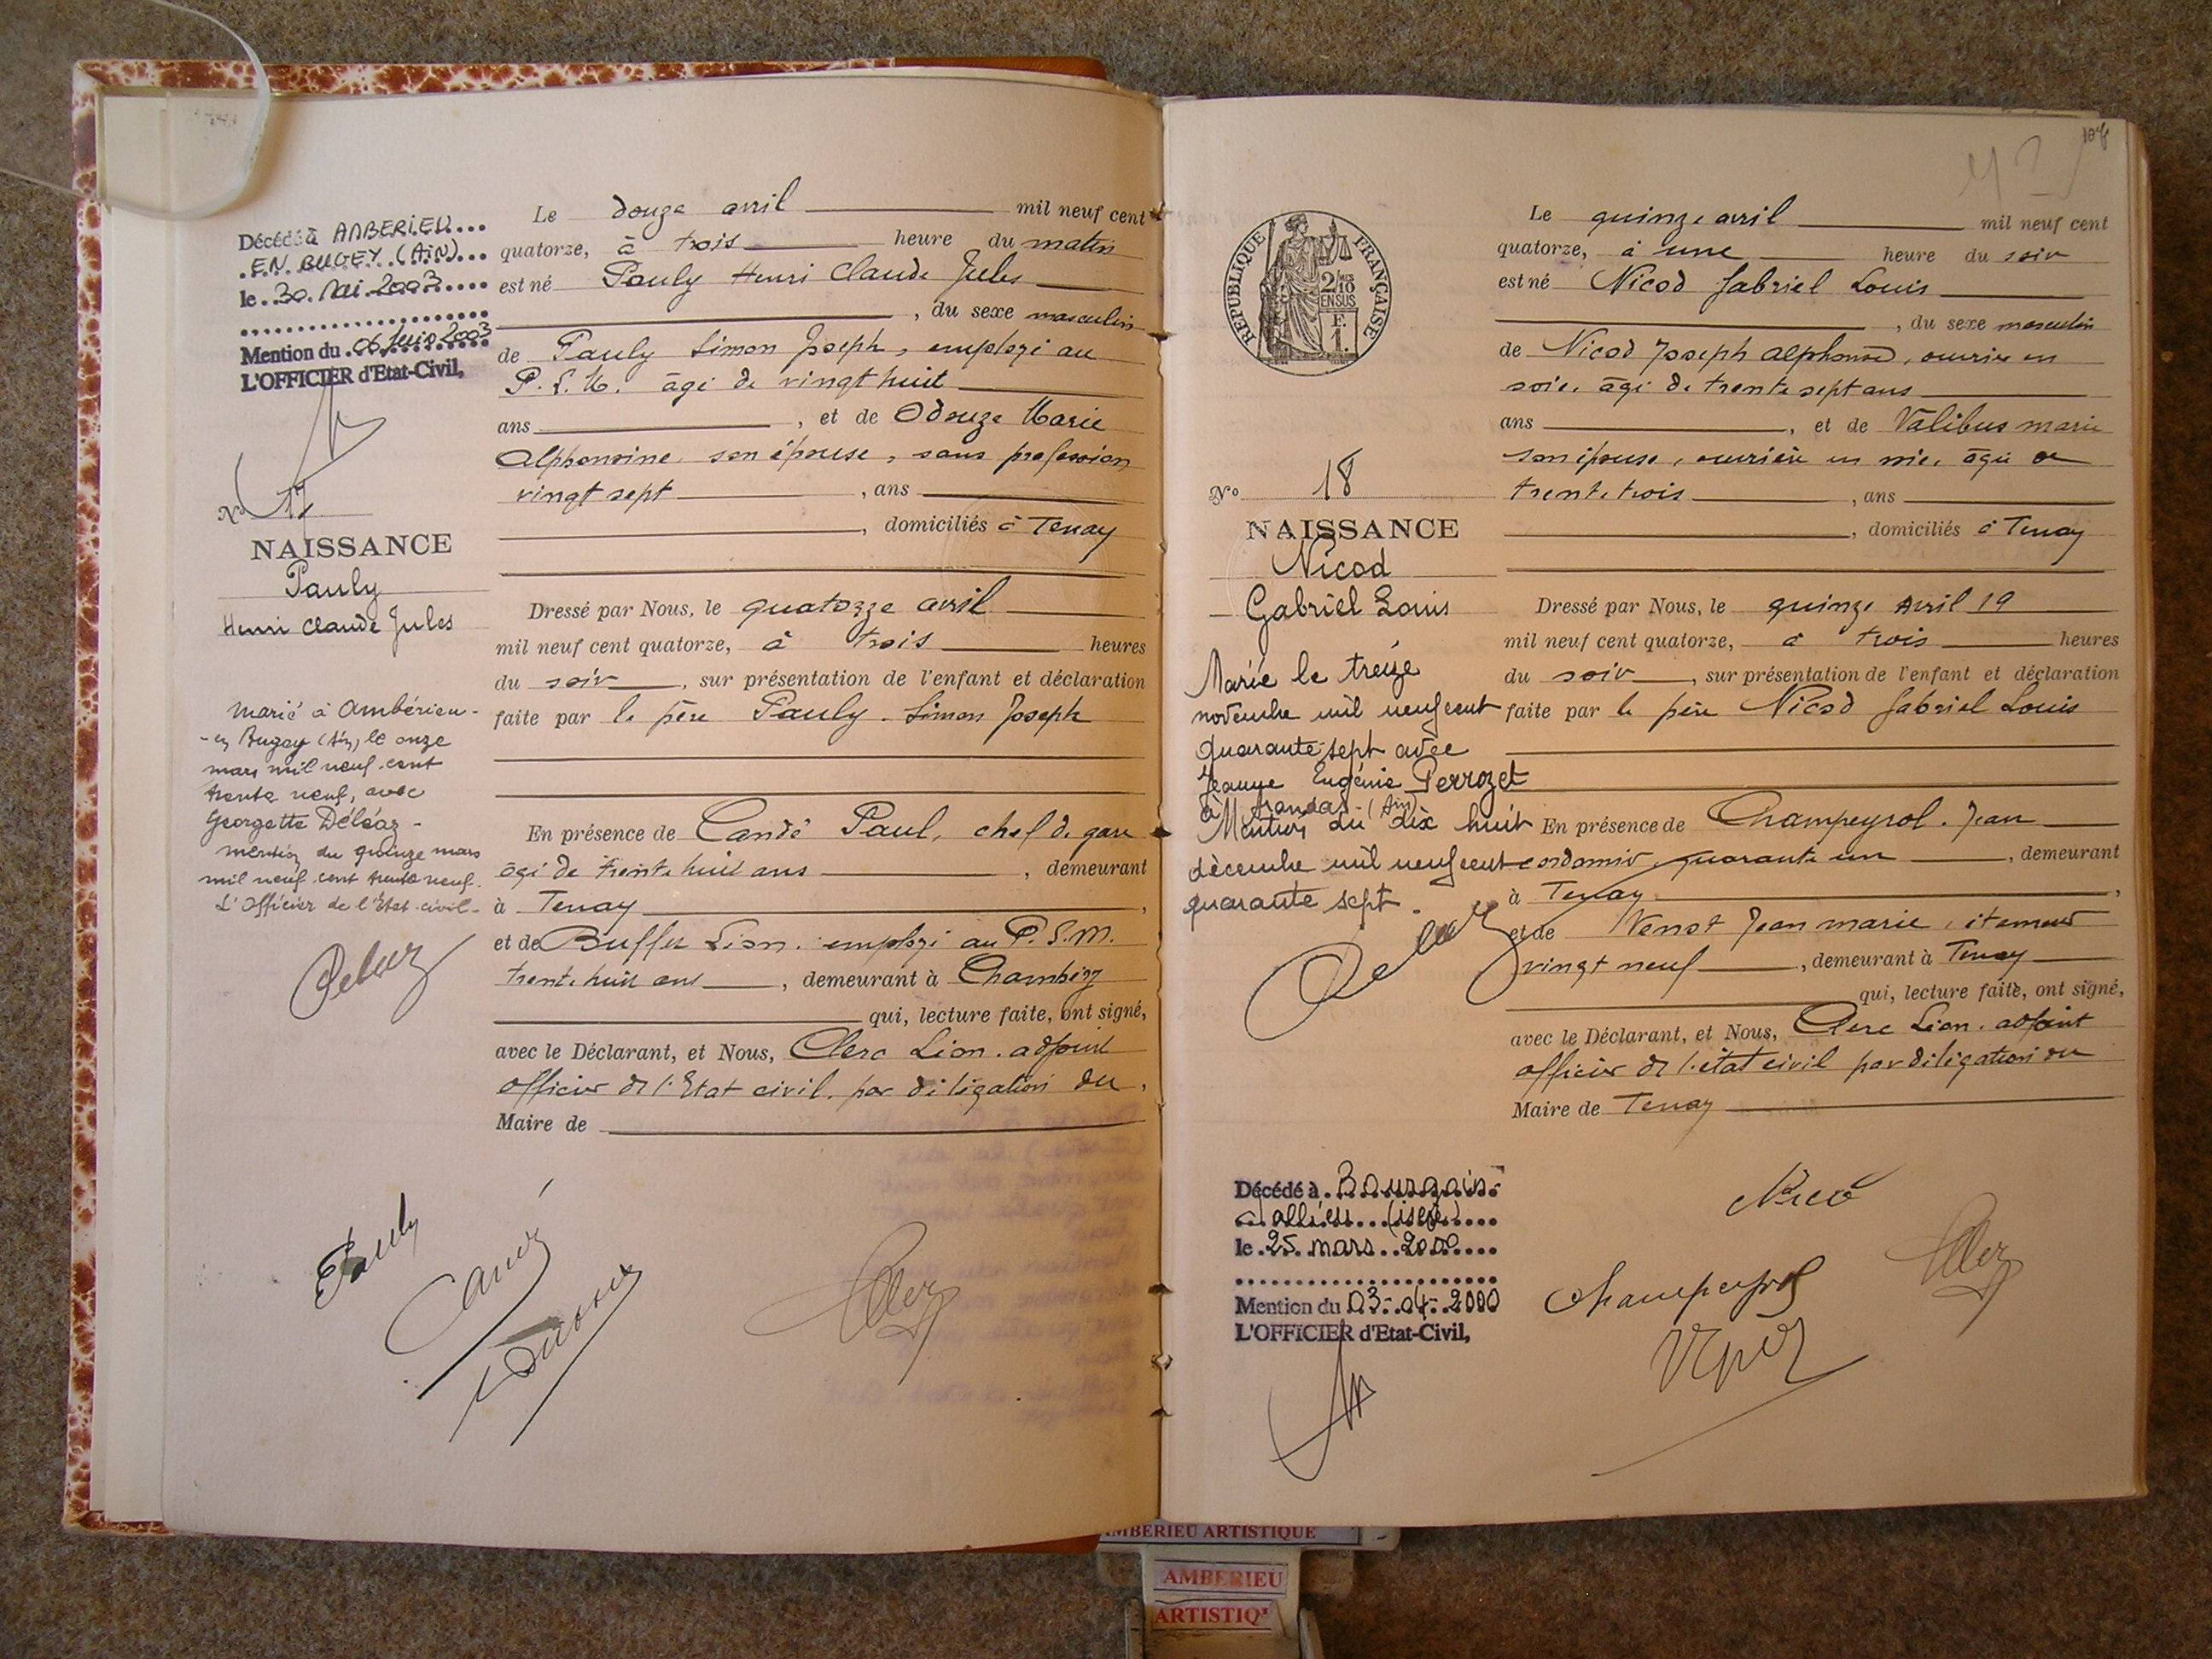 Décédé à AMBERIEU...
EN BUGEY (AIN)...
le 30 Mai 2003
Mention du 06 Juin 2003
L'OFFICIER d'Etat-Civil,
No 17
NAISSANCE
Pauly
Henri Claude Jules
Marié à Ambérieu-
-en Bugey (Ain) le onze
mars mil neuf cent
trente neuf, avec
Georgette Déléaz -
mention du quinze mars
mil neuf cent trente neuf.
L'Officier de l'Etat civil-
Le douze avril mil neuf cent
quatorze, à trois heure du matin
est né Pauly Henri Claude Jules
, du sexe masculin
de Pauly Simon Joseph, employé au
P. L. M. âgé de vingt huit
ans , et de Odouze Marie
Alphonsine son épouse, sans profession
vingt sept , ans
, domiciliés à Tenay
Dressé par Nous, le quatorze avril
mil neuf cent quatorze, à trois heures
du soir , sur présentation de l'enfant et déclaration
faite par le père Pauly Simon Joseph
En présence de Candé Paul, chef de gare
âgé de trente huit ans , demeurant
à Tenay ,
et de Buffer Léon employé au P. L. M.
trente huit ans , demeurant à Chambéry
qui, lecture faite, ont signé,
avec le Déclarant, et Nous, Clerc Léon. adjoint
officier de l'Etat civil. par déligation du
Maire de
Pauly
RÉPUBLIQUE FRANÇAISE
2/10 EN SUS
F. 1.
No 18
NAISSANCE
Nicod
Gabriel Louis
Marié le treize
novembre mil neuf cent
quarante-sept avec
Jeanne Eugénie Perrozet
à Arandas (Ain)
Mention du dix huit
décembre mil neuf cent
quarante sept.
Décédé à Bourgoin-
Jallieu (isère)
le 25 mars 2000
Mention du 03-04-2000
L'OFFICIER d'Etat-Civil,
Le quinze avril mil neuf cent
quatorze, à une heure du soir
est né Nicod Gabriel Louis
, du sexe masculin
de Nicod Joseph Alphonse, ouvrier en
soie, âgé de trente sept ans
ans , et de Valibus marie
son épouse, ouvrière en soie, âgée de
trente trois , ans
, domiciliés à Tenay
Dressé par Nous, le quinze Avril 19
mil neuf cent quatorze, à trois heures
du soir , sur présentation de l'enfant et déclaration
faite par le père Nicod Gabriel Louis
En présence de Champeyrol. Jean
cordonnier, quarante un , demeurant
à Tenay ,
et de Jean marie,
vingt neuf , demeurant à Tenay
qui, lecture faite, ont signé,
avec le Déclarant, et Nous, Clerc Léon. adjoint
officier de l'état civil par déligation du
Maire de Tenay
Champeyrol
AMBERIEU ARTISTIQUE
AMBERIEU
ARTISTIQ